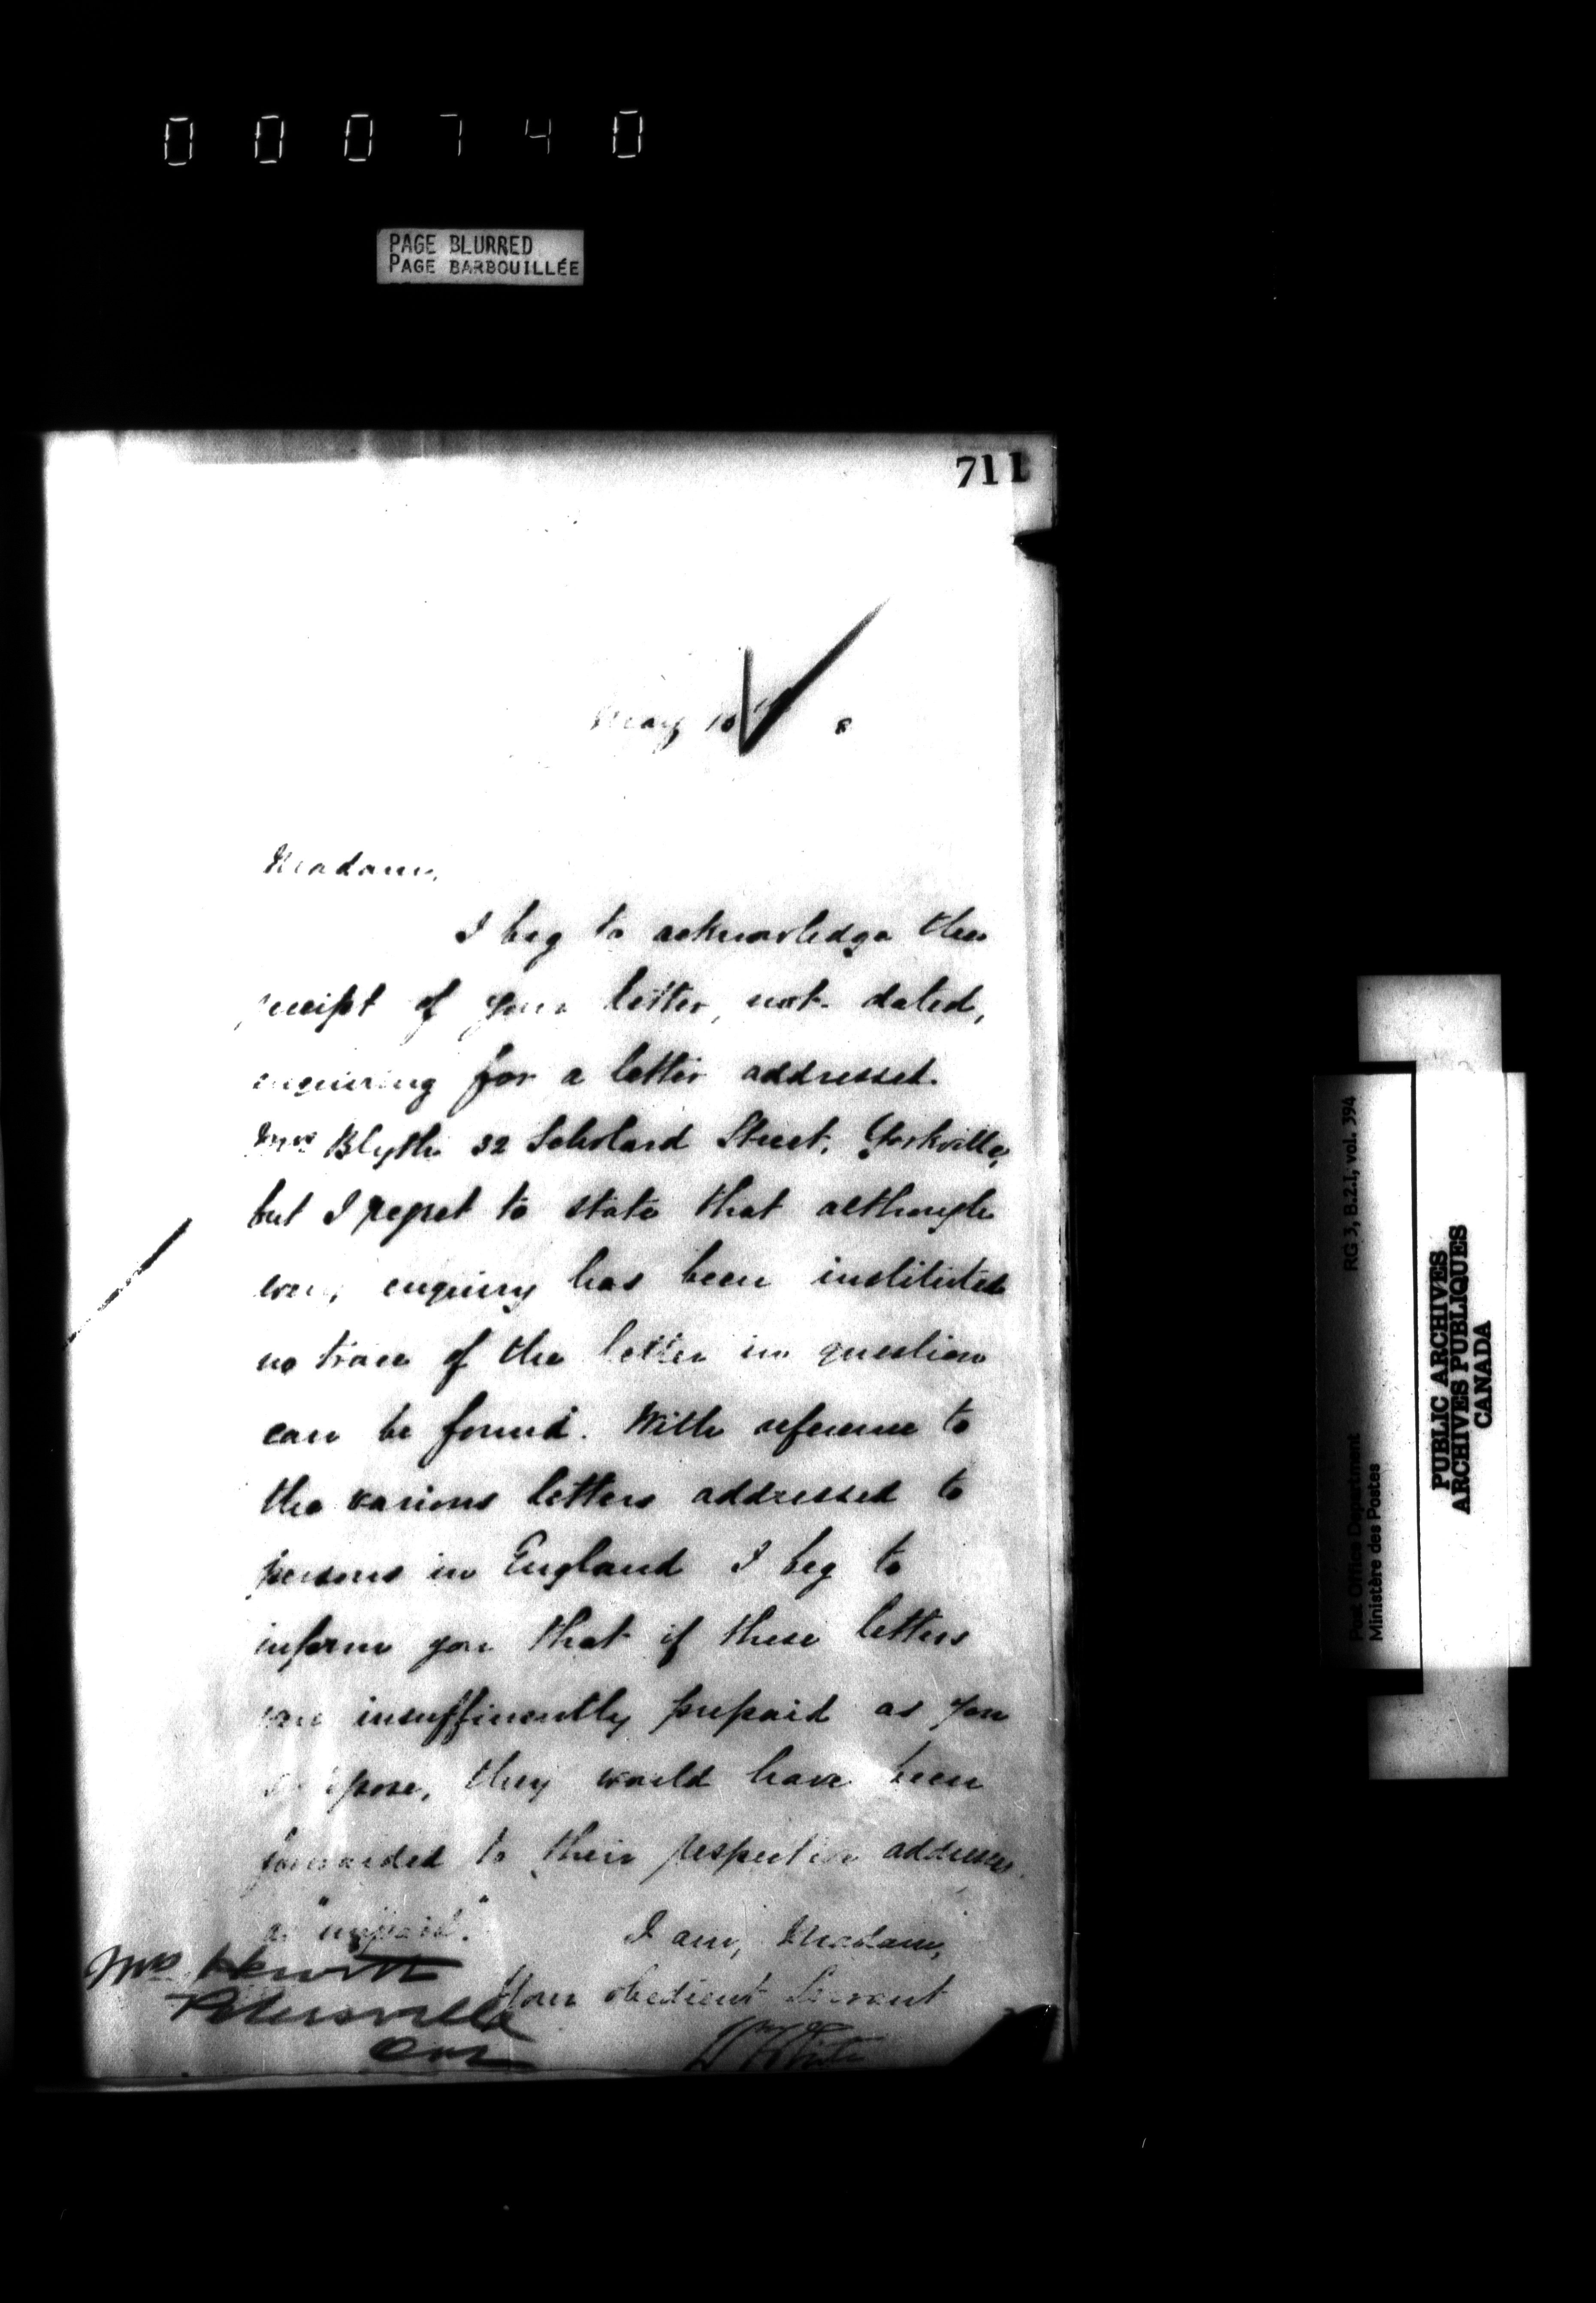 000740
PAGE BLURRED
PAGE BARBOUILLÉE
711
May 10th 8
Madam,
I beg to acknowledge the
receipt of your letter, not dated,
enquiring for a letter addressed
Mrs Blyth 32 Scholard Street, Yorkville,
but I regret to state that although
every enquiry has been instituted
no trace of the letter in question
can be found. With reference to
the various letters addressed to
persons in England I beg to
inform you that if these letters
insufficiently prepaid as you
suppose, they would have been
forwarded to their respective addresses
as "unpaid". I am, Madam,
Your obedient Servant
White
Mrs Hewitt
Petersville
Ont
RG 3, B.2.1, vol. 394
Post Office Department
Ministère des Postes
PUBLIC ARCHIVES
ARCHIVES PUBLIQUES
CANADA